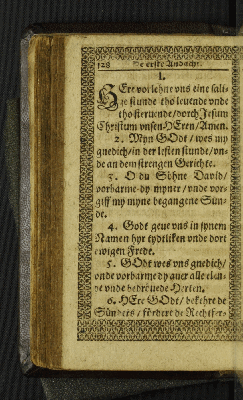 128 De erste Andacht.
1.
HEre vorlehne vns eine sali-
ge stunde tho leuende vnde
tho steruende/dorch Jesum
Christum vnsen HEren/Amen.
2. Myn GOdt / wes my
gnedich/in der lesten stunde/vn-
de an dem strengen Gerichte.
3. O du Söhne Dauid/
vorbarme dy myner / vnde vor-
giff my myne begangene Sün-
de.
4. Godt geue vns in synem
Namen hyr tydtliken vnde dort
ewigen Frede.
5. GOdt wes vns gnedich/
vnde vorbarme dy auer alle elen-
de vnde bedröuede Herten.
6. HEre GOdt / bekehre de
Sünders / fördert de Rechtfer-